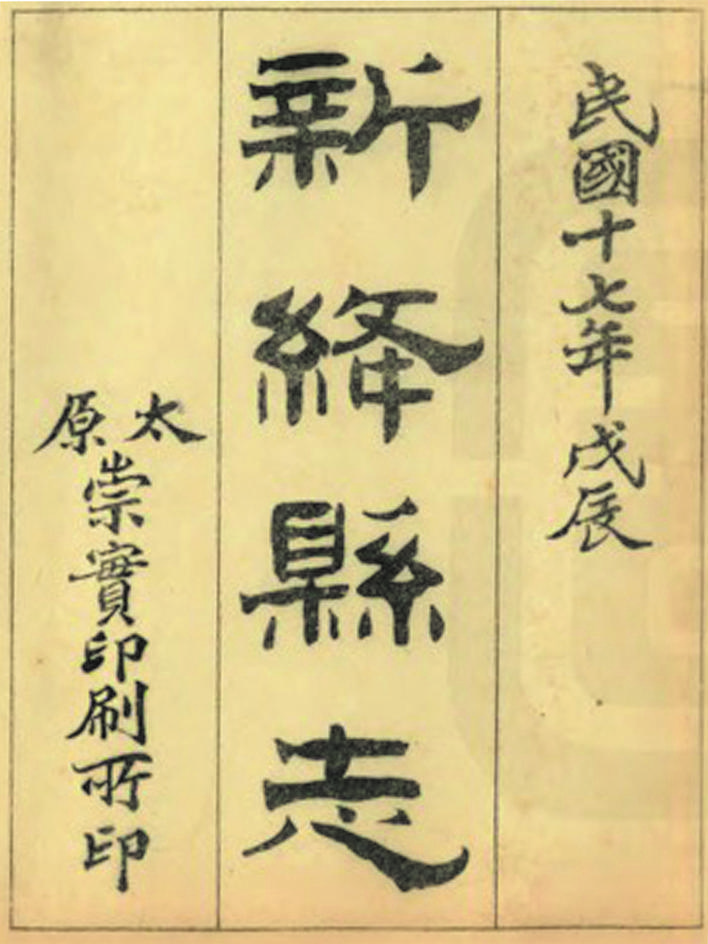 民國十七年戊辰
新絳縣志
太原
崇實印刷所印